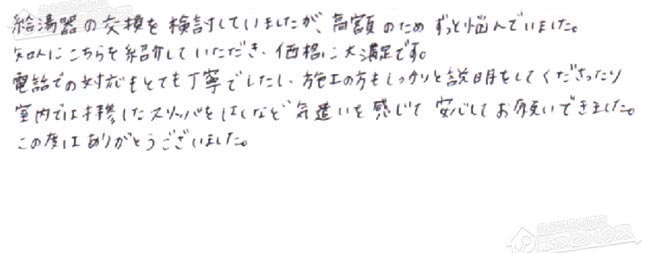 給湯器の交換を検討していましたが、高額のためずっと悩んでいました。
知人にこちらを紹介していただき、価格に大満足です。
電話での対応もとても丁寧でしたし、施工の方もしっかりと説明をしてくださったり
室内では持参したスリッパをはくなど気遣いを感じて安心してお願いできました。
この度はありがとうございました。